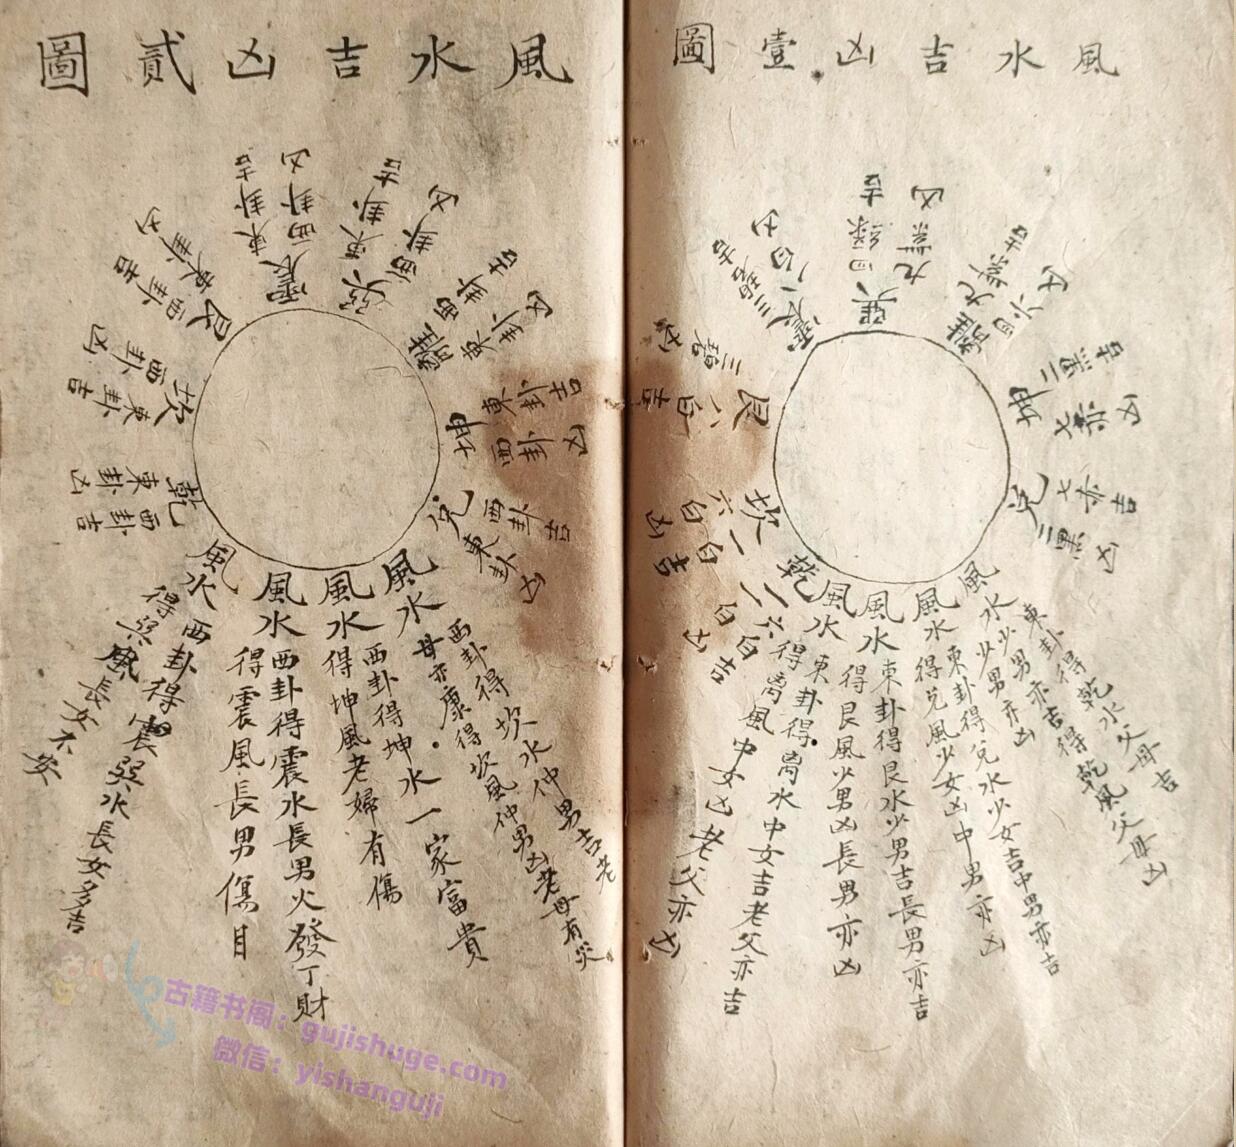 風水吉凶壹圖
坤二黑吉
七赤凶
離九紫吉
四六凶
巽四綠吉
九紫凶
震三碧吉
一白凶
艮八白吉
三碧凶
坎一白吉
六白凶
乾六白吉
一白凶
兌七赤吉
二黑凶
風水東卦得乾水父母吉
少男亦吉得乾風父母凶
少男亦凶
風水東卦得兌水少女吉中男亦吉
得兌風少女凶中男亦凶
風水東卦得艮水少男吉長男亦吉
得艮風少男凶長男亦凶
風水東卦得离水中女吉老父亦吉
得离風中女凶老父亦凶
風水吉凶貳圖
坤東卦吉
西卦凶
離西卦吉
東卦凶
巽東卦吉
西卦凶
震東卦吉
西卦凶
艮西卦吉
東卦凶
坎東卦吉
西卦凶
乾西卦吉
東卦凶
兌西卦吉
東卦凶
風水西卦得坎水仲男吉老
母亦康得坎風仲男凶老母有災
風水西卦得坤水一家富貴
得坤風老婦有傷
風水西卦得震水長男火發丁財
得震風長男傷目
風水西卦得震巽水長女多吉
得巽風長女不安
古籍书阁：gujishuge.com
微信：yishanguji